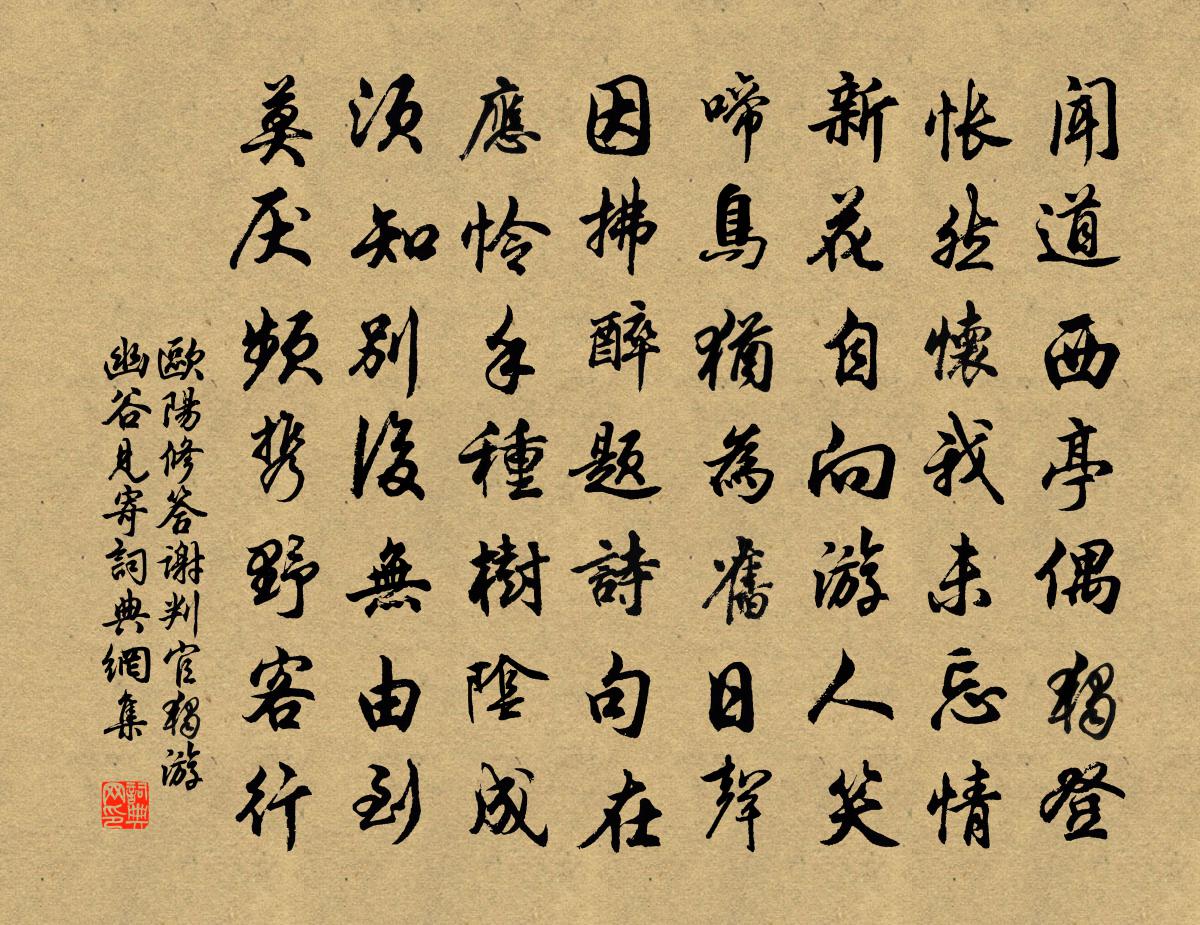 聞道西亭偶獨登
悵然懷我未忘情
新花自向游人笑
啼鳥猶為舊日聲
因拂醉題詩句在
應憐手種樹陰成
須知別後無由到
莫厌頻携野客行
歐陽修答謝判官獨游
幽谷見寄詞典網集
詞典
网印